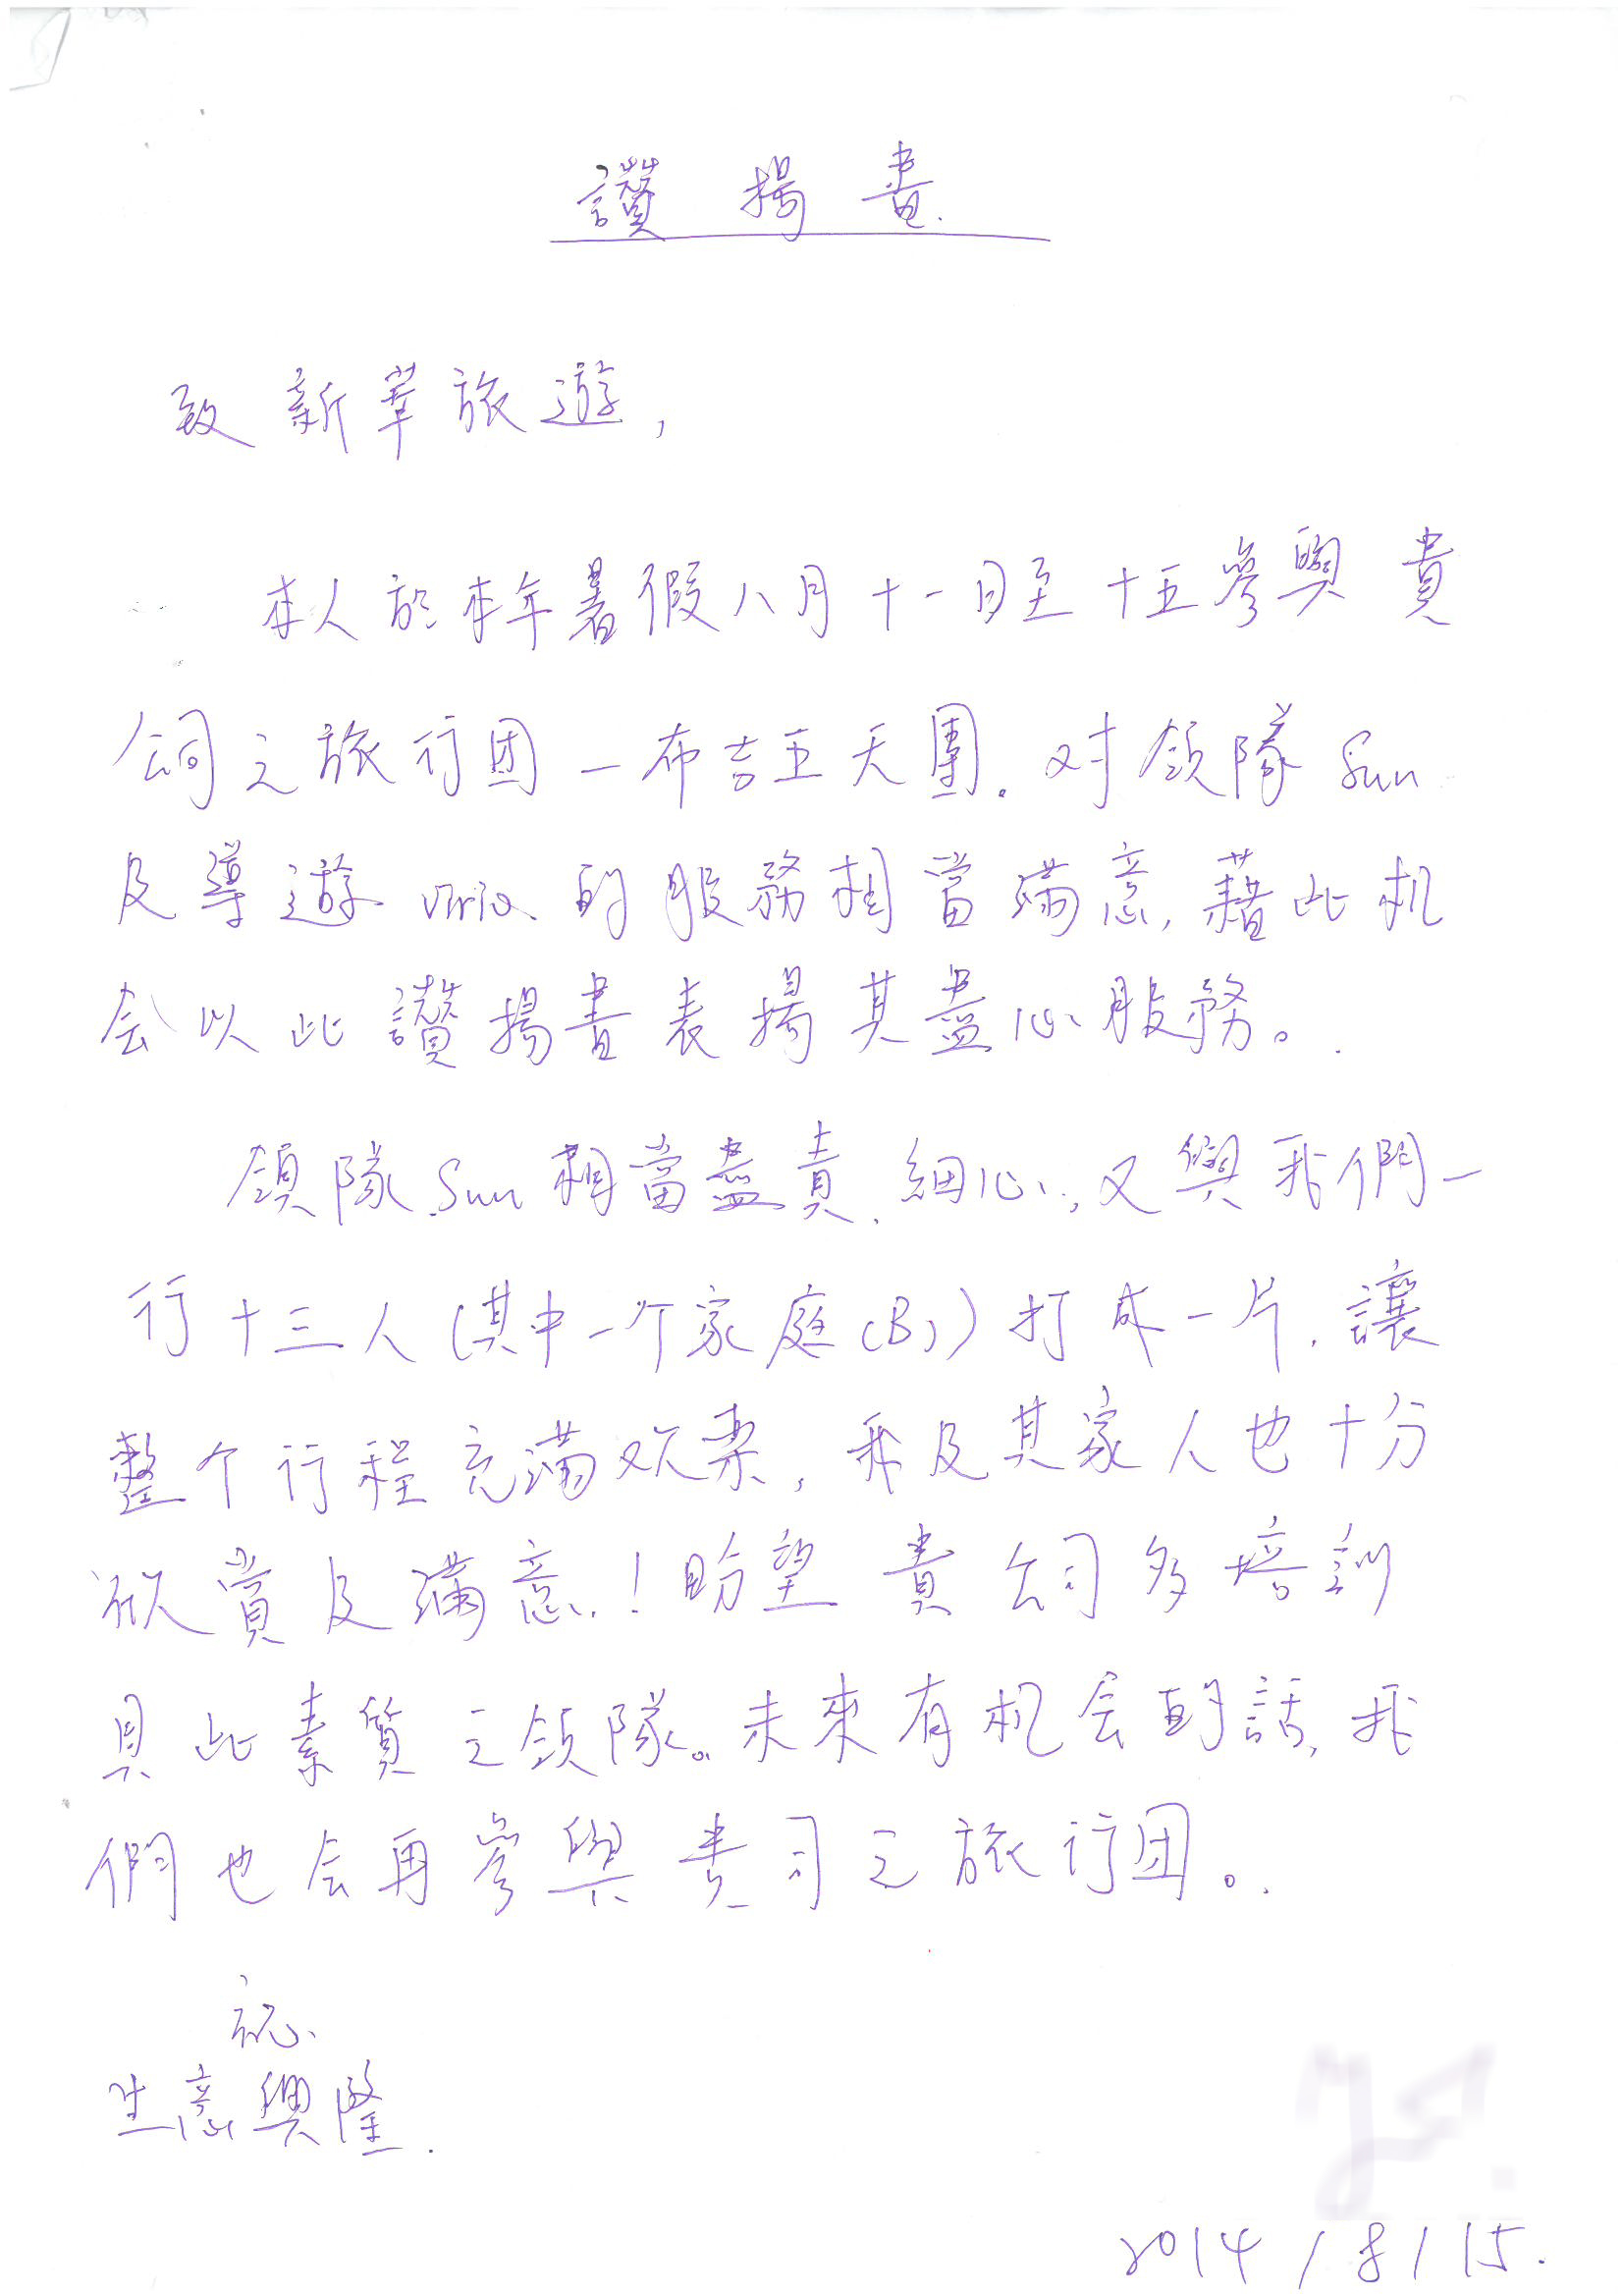 讚揚書
致新華旅遊，
本人於本年暑假八月十一日至十五參與貴
公司之旅行团－布吉五天團。对領隊Sun
及導遊Viria的服務相當滿意，藉此机
会以此讚揚書表揚其盡心服務。
領隊Sun相當盡責、細心，又與我們一
行十三人（其中一个家庭(B)）打成一片，讓
整个行程充满欢樂，我及其家人也十分
欣賞及滿意！盼望貴公司多培訓
具此素質之領隊。未來有机会的話，我
們也会再參與貴司之旅行团。
祝
生意興隆.
2014/8/15.